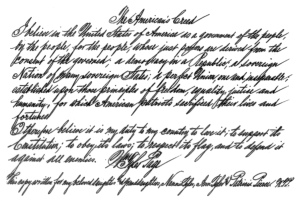 The American's Creed
I believe in the United States of America as a government of the people,
by the people, for the people, whose just powers are derived from the
consent of the governed; a democracy in a Republic, a sovereign
Nation of many sovereign States; a perfect Union, one and inseparable;
established upon those principles of freedom, equality, justice and
humanity, for which American patriots sacrificed their lives and
fortunes
I therefore believe it is my duty to my country to love it; to support its
Constitution; to obey its laws; to respect its flag; and to defend it
against all enemies.
This copy written for my beloved daughter